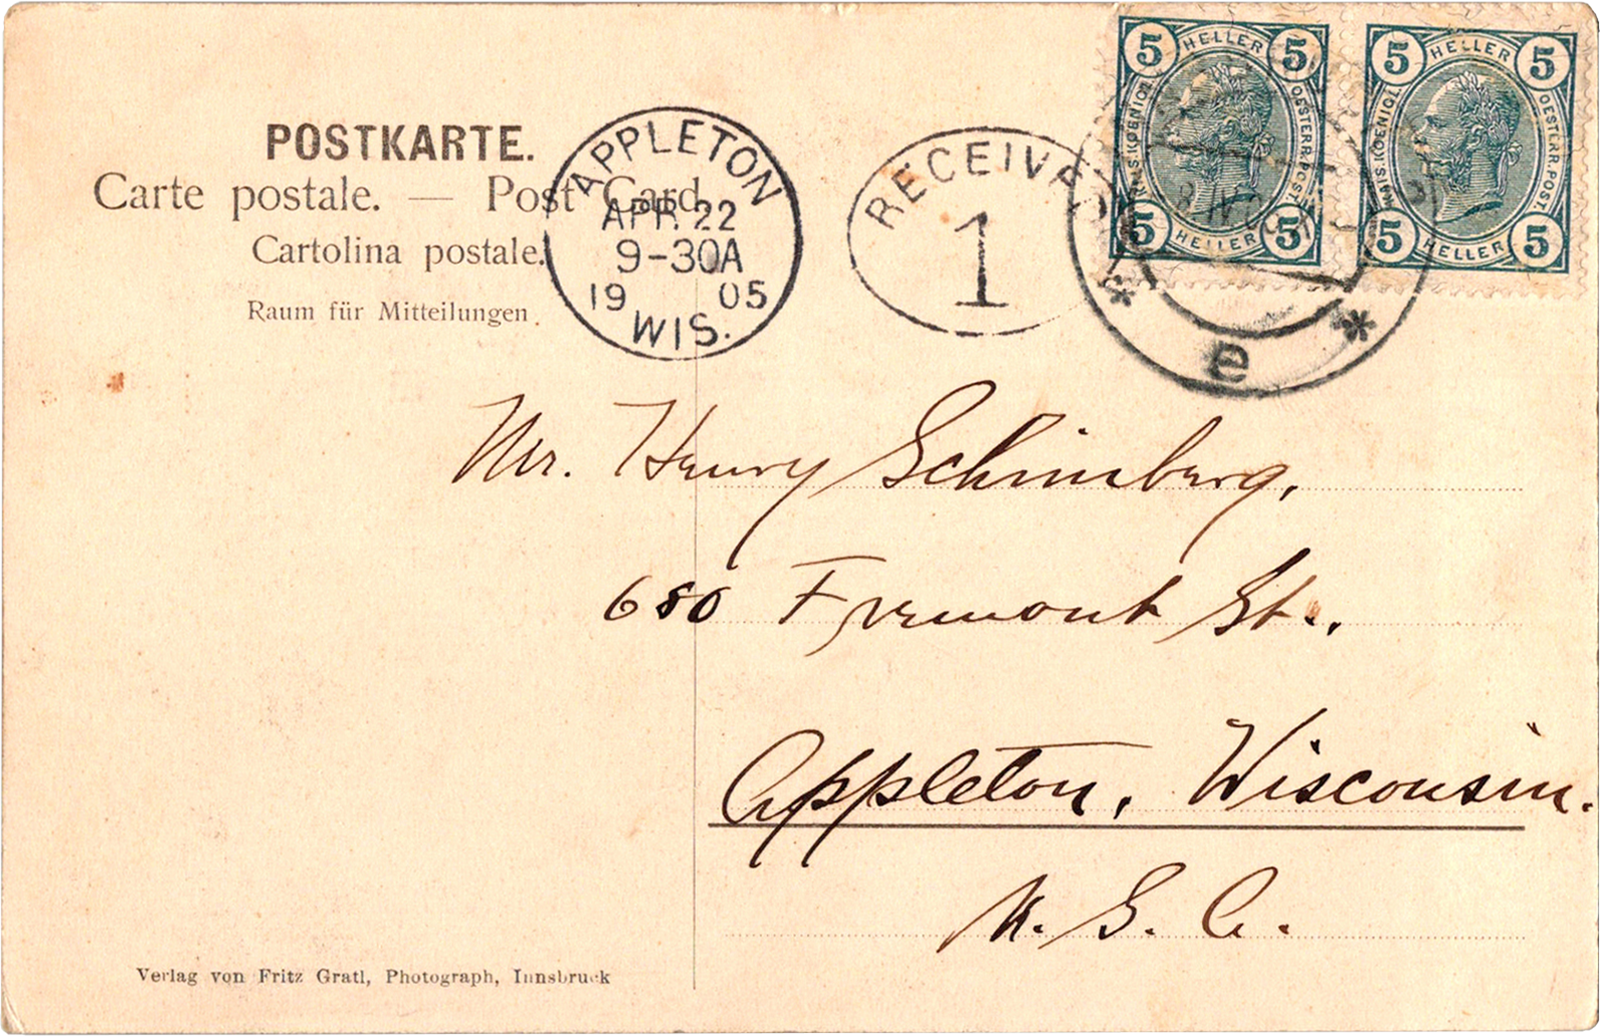 POSTKARTE.
Carte postale. — Post Card.
Cartolina postale.
Raum für Mitteilungen.
APPLETON
APR. 22
9-30A
19 05
WIS.
RECEIVED
1
5 HELLER 5
OESTERR. POST.
5 HELLER 5
5 HELLER 5
KAIS. KOENIGL.
OESTERR. POST.
5 HELLER 5
e
Mr. Henry Schimberg,
680 Fremont St.,
Appleton, Wisconsin.
U. S. A.
Verlag von Fritz Gratl, Photograph, Innsbruck